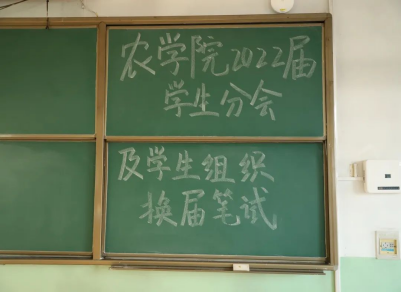 农学院2022届
学生分会
及学生组织
换届笔试